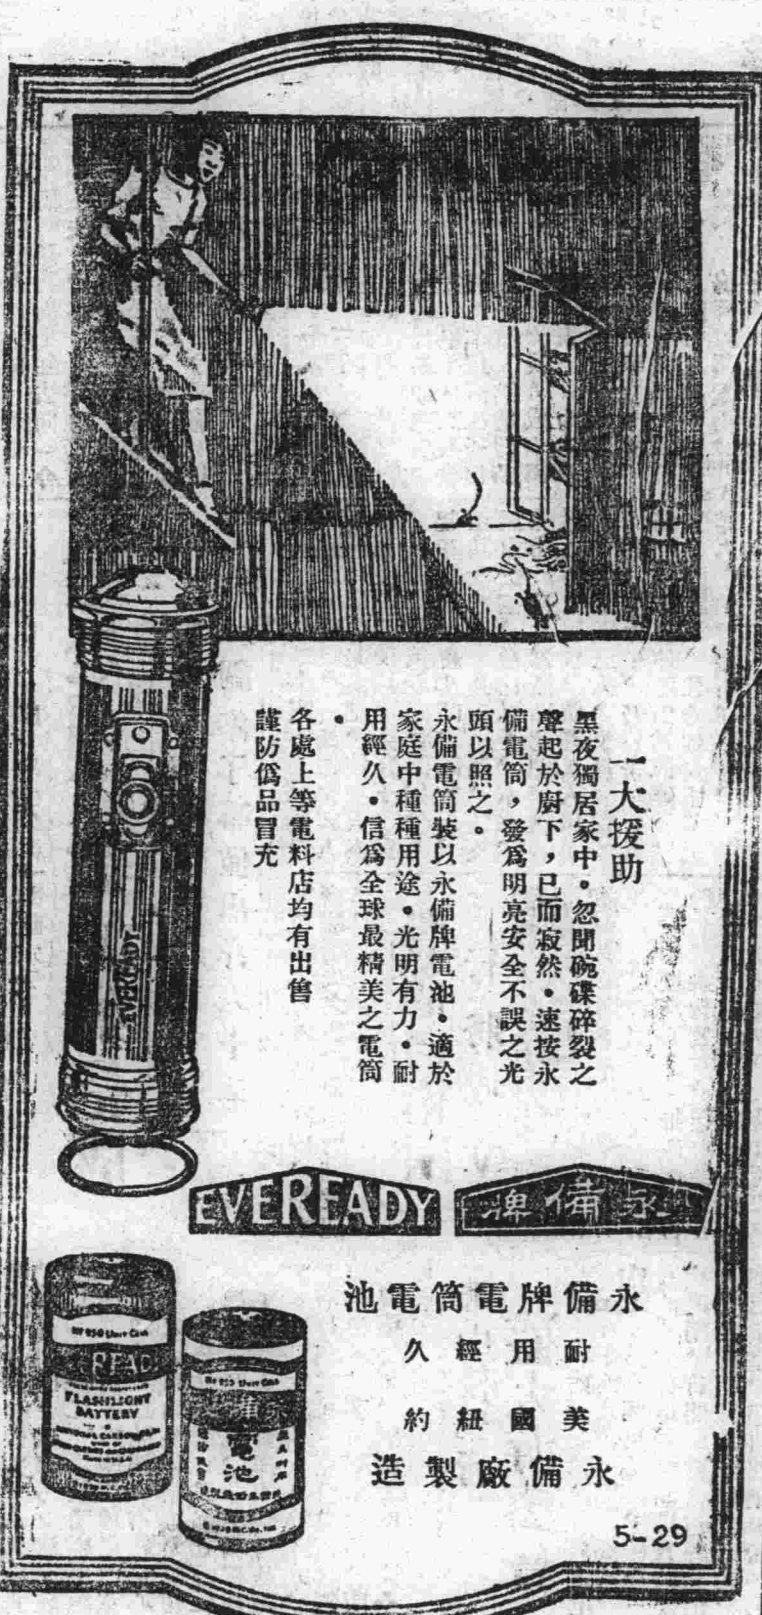 一大援助
黑夜獨居家中。忽聞碗碟碎裂之
聲起於廚下，已而寂然。速按永
備電筒，發爲明亮安全不誤之光
頭以照之。
永備電筒裝以永備牌電池。適於
家庭中種種用途。光明有力。耐
用經久。信爲全球最精美之電筒
。
各處上等電料店均有出售
謹防僞品冒充
EVEREADY
EVEREADY
永備牌
永備牌電筒電池
耐用經久
美國紐約
永備廠製造
FLASHLIGHT
BATTERY
電池
5-29